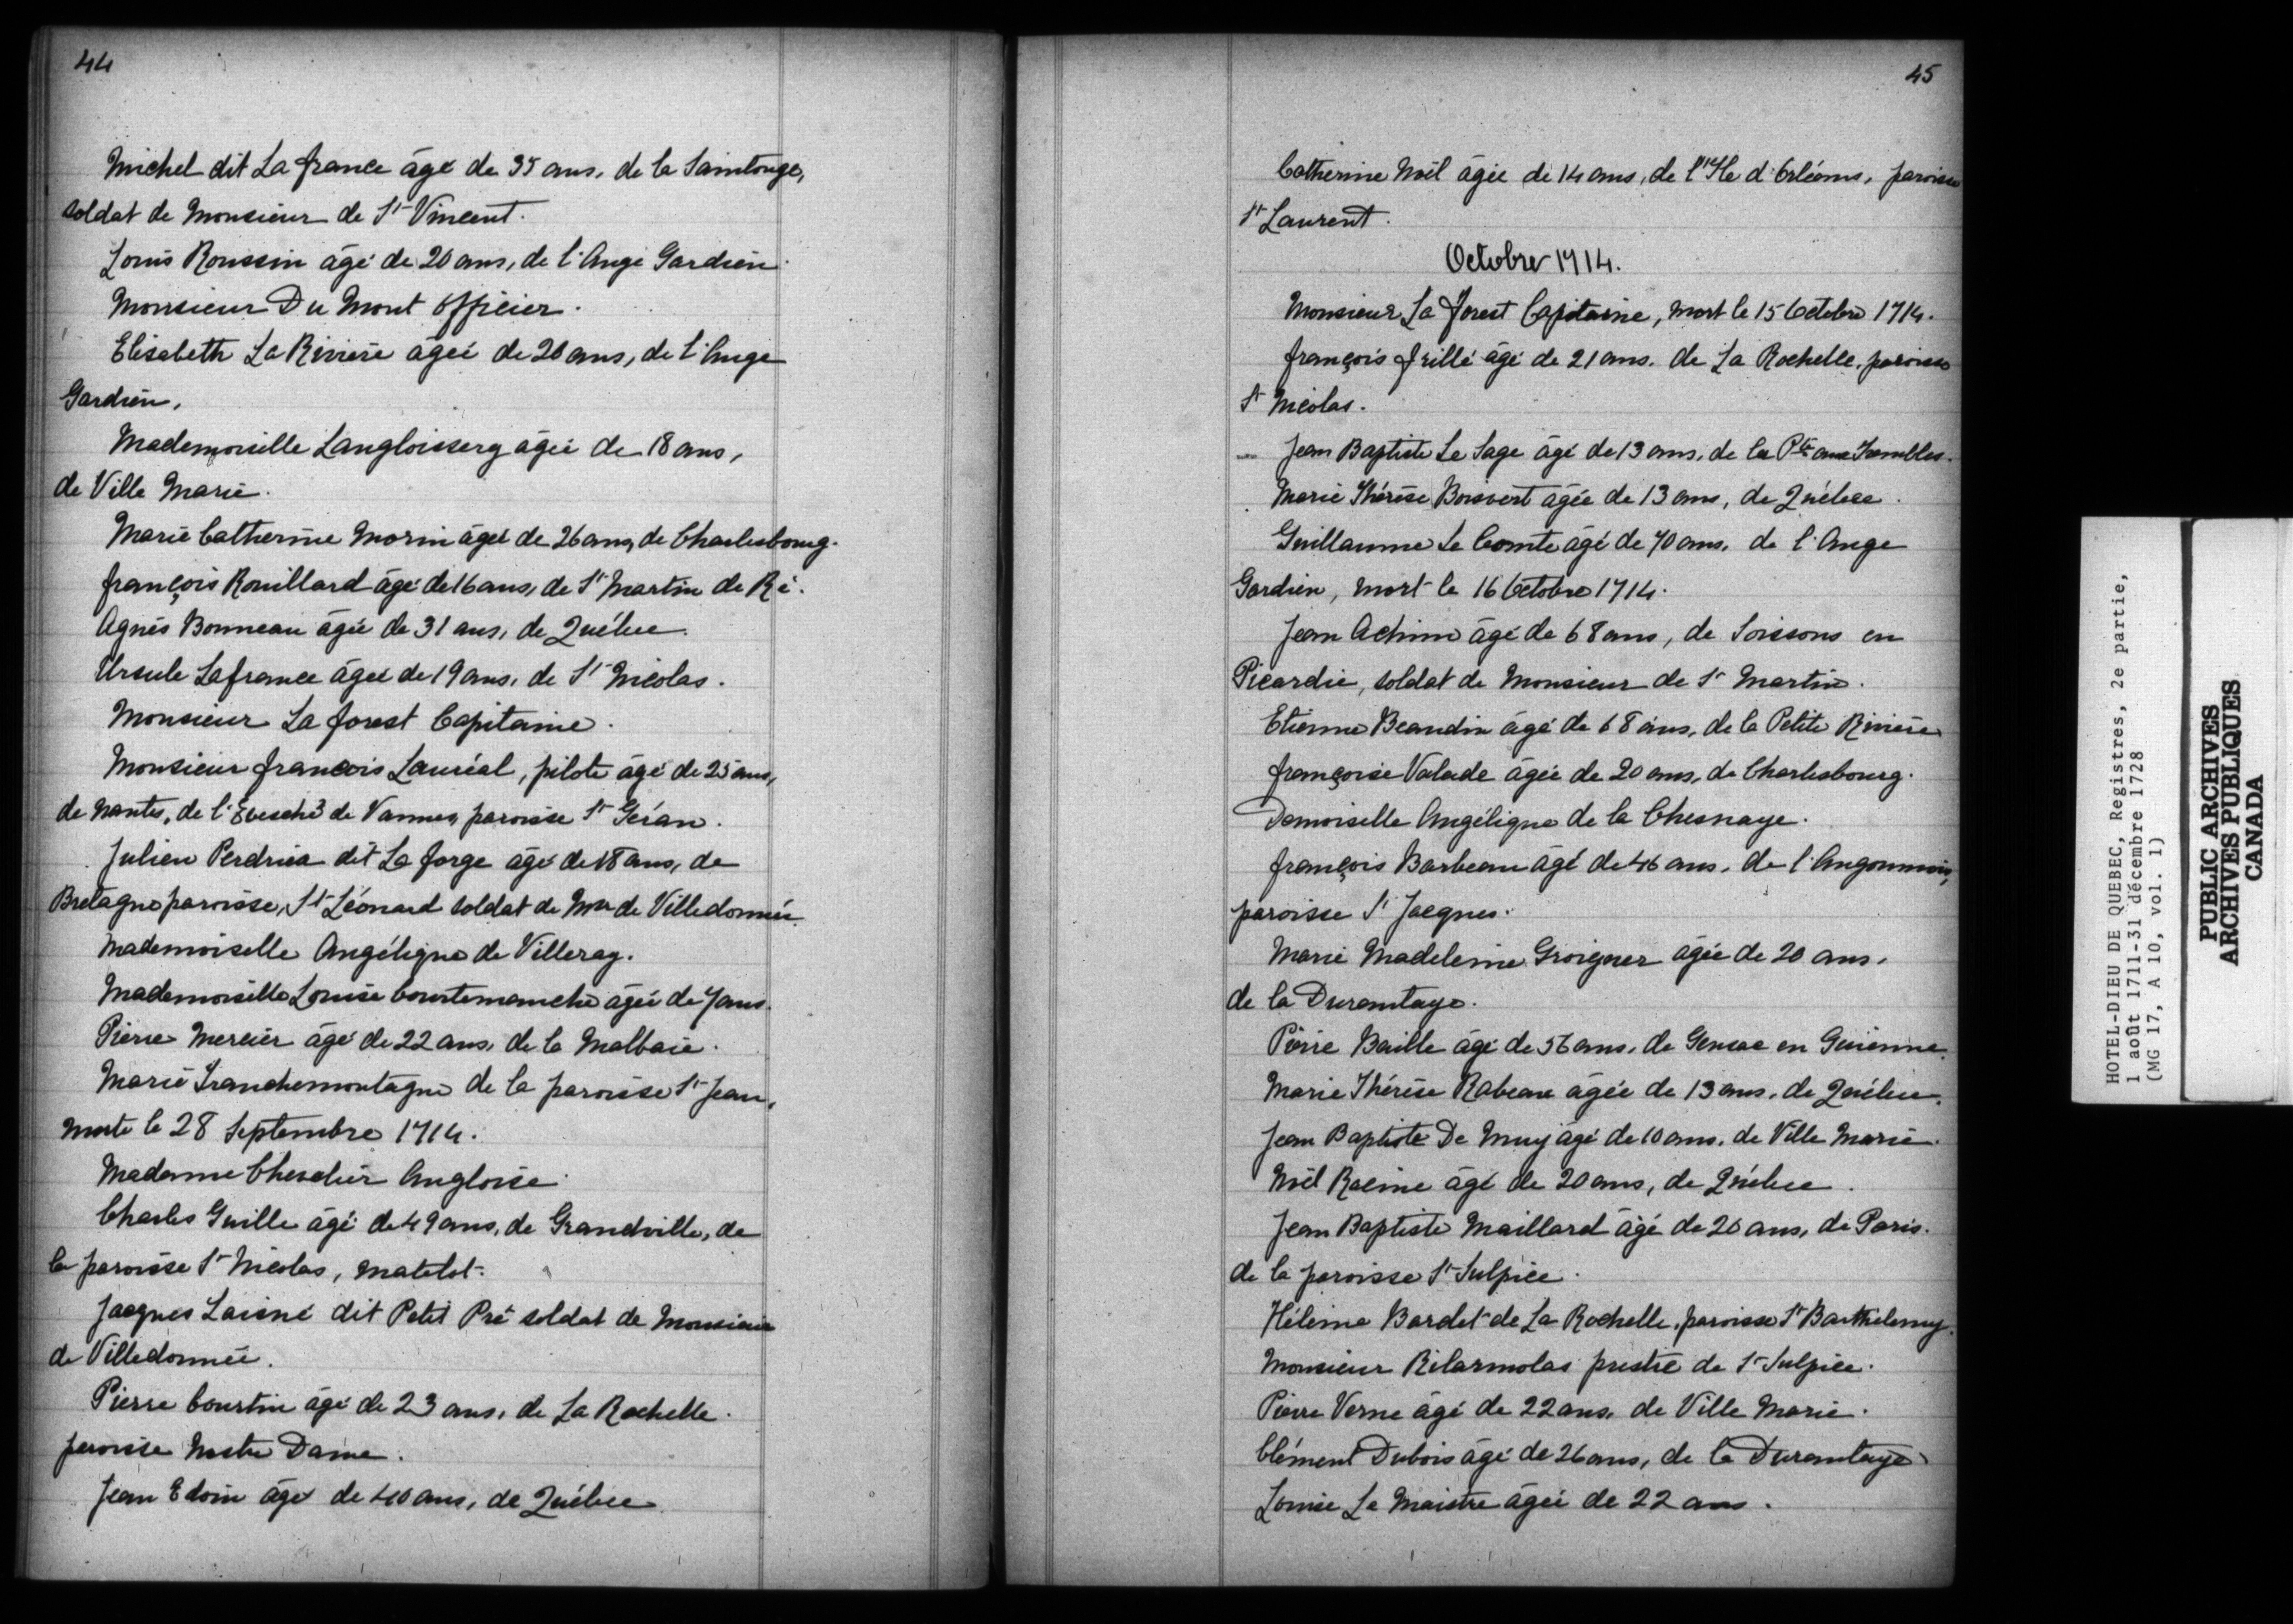 44
Michel dit La france âgé de 35 ans, de la Saintonge,
soldat de Monsieur de St Vincent.
Louis Roussin âgé de 20 ans, de l'Ange Gardien.
Monsieur Du Mont Officier.
Elisabeth La Riviere âgée de 20 ans, de l'Ange
Gardien.
Mademoiselle Langloissery âgée de 18 ans,
de Ville Marie.
Marie Catherine Morin âgée de 26 ans, de Charlesbourg.
françois Rouillard âgé de 16 ans, de St Martin de Ré.
Agnès Bonneau âgée de 31 ans, de Québec.
Ursule Lafrance âgée de 19 ans, de St Nicolas.
Monsieur La forest Capitaine.
Monsieur francois Lauréal, pilote âgé de 25 ans,
de Nantes, de l'Evesché de Vannes, paroisse St Géran.
Julien Perdriea dit La forge âgé de 18 ans, de
Bretagne paroisse, St Léonard soldat de Mr de Villedonnée.
Mademoiselle Angélique de Villeray.
Mademoiselle Louise Courtemanche âgée de 7 ans.
Pierre Mercier âgé de 22 ans, de la Malbaie.
Marie Tranchemontagne de la paroisse St Jean,
morte le 28 Septembre 1714.
Madame Chevalier Angloise.
Charles Guille âgé de 49 ans, de Grandville, de
la paroisse St Nicolas, matelot.
Jacques Laisné dit Petit Pré soldat de Monsieur
de Villedonnée.
Pierre Courtin âgé de 23 ans, de La Rochelle.
paroisse Nostre Dame.
Jean Edoin âgé de 40 ans, de Québec
45
Catherine Noël âgée de 14 ans, de l'Ile d'Orléans, paroisse
St Laurent.
Octobre 1714.
Monsieur La forest Capitaine, mort le 15 Octobre 1714.
françois frillé âgé de 21 ans, de La Rochelle, paroisse
St Nicolas.
Jean Baptiste Le Sage âgé de 13 ans, de la Pte aux Trembles.
Marie Thérèse Boisvert âgée de 13 ans, de Québec.
Guillaume Le Comte âgé de 70 ans, de l'Ange
Gardien, mort le 16 Octobre 1714.
Jean Achim âgé de 68 ans, de Soissons en
Picardie, soldat de Monsieur de St Martin.
Etienne Beaudin âgé de 68 ans, de la Petite Riviere
françoise Valade âgée de 20 ans, de Charlesbourg.
Demoiselle Angélique de la Chesnaye.
françois Barbeau âgé de 46 ans, de l'Angoumois,
paroisse St Jacques.
Marie Madeleine Groigner âgée de 20 ans,
de la Durantaye.
Pierre Baille âgé de 56 ans, de Gensac en Guienne.
Marie Thérèse Rabeau âgée de 13 ans, de Québec.
Jean Baptiste De Muy âgé de 10 ans, de Ville Marie.
Noël Racine âgé de 20 ans, de Québec.
Jean Baptiste Maillard âgé de 20 ans, de Paris.
de la paroisse St Sulpice.
Hélène Bardet de La Rochelle, paroisse St Barthelemy.
Monsieur Rilarmolas prestre de St Sulpice.
Pierre Verne âgé de 22 ans, de Ville Marie.
Clément Dubois âgé de 26 ans, de la Durantaye
Louise Le Maistre âgée de 22 ans.
HOTEL-DIEU DE QUEBEC, Registres, 2e partie,
1 août 1711-31 décembre 1728
(MG 17, A 10, vol. 1)
PUBLIC ARCHIVES
ARCHIVES PUBLIQUES
CANADA